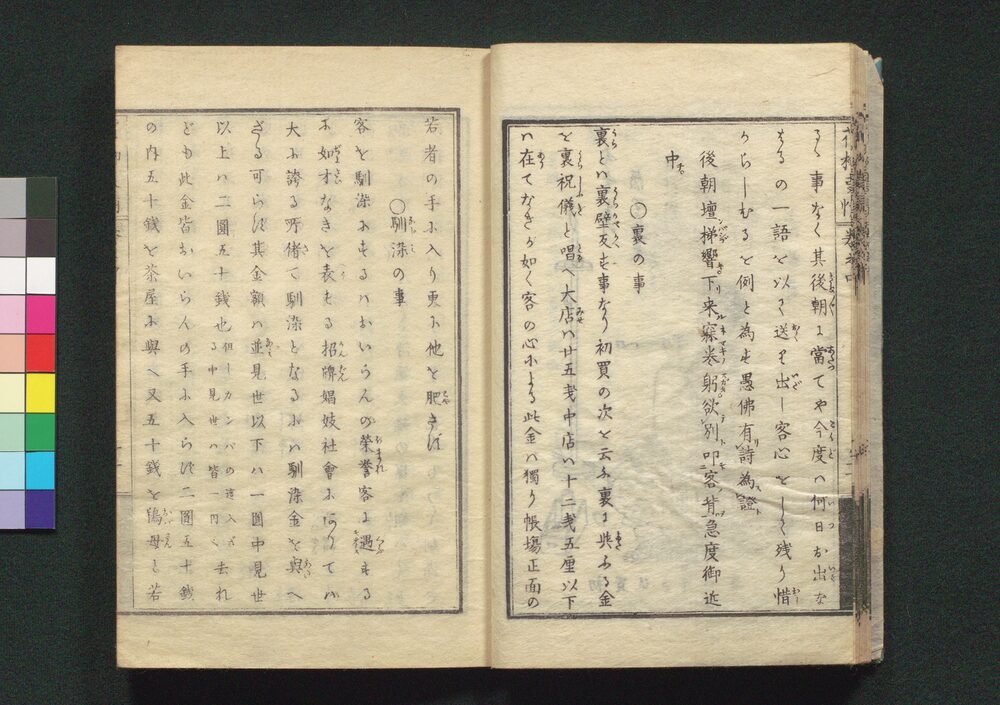 るゝ事なく其後朝に當てや今度ハ何日お出な
さるの一語を以て送り出し客心をして残り惜
からしむるを例と為す愚佛有詩為證
後朝壇梯響下來寐米躬欲別叩客背急度御近
中
〇裏の事
裏とハ裏壁反す事なり初買の次を云ふ裏に与ふる金
を裏祝儀と唱へ大店ハ廿五戔中店ハ十二戔五厘以下
ハ在てなきが如く客の心による此金ハ獨り帳場正面の
若者の手に入り更に他を肥さず
〇馴染の事
客を馴染にするハおいらんの榮誉客に遇する
に如才なきを表する招牌娼妓社會に於てハ
大に誇る所偖て馴染となるにハ馴染金を與へ
ざる可らず其金額ハ並見世以下ハ一圓中見世
以上ハ二圓五十銭也但しカンバの這入ざる中見世ハ皆一円く去れ
ども此金皆おいらんの手に入らず二圓五十銭
の内五十銭を茶屋に與へ又五十銭を鴇母と若